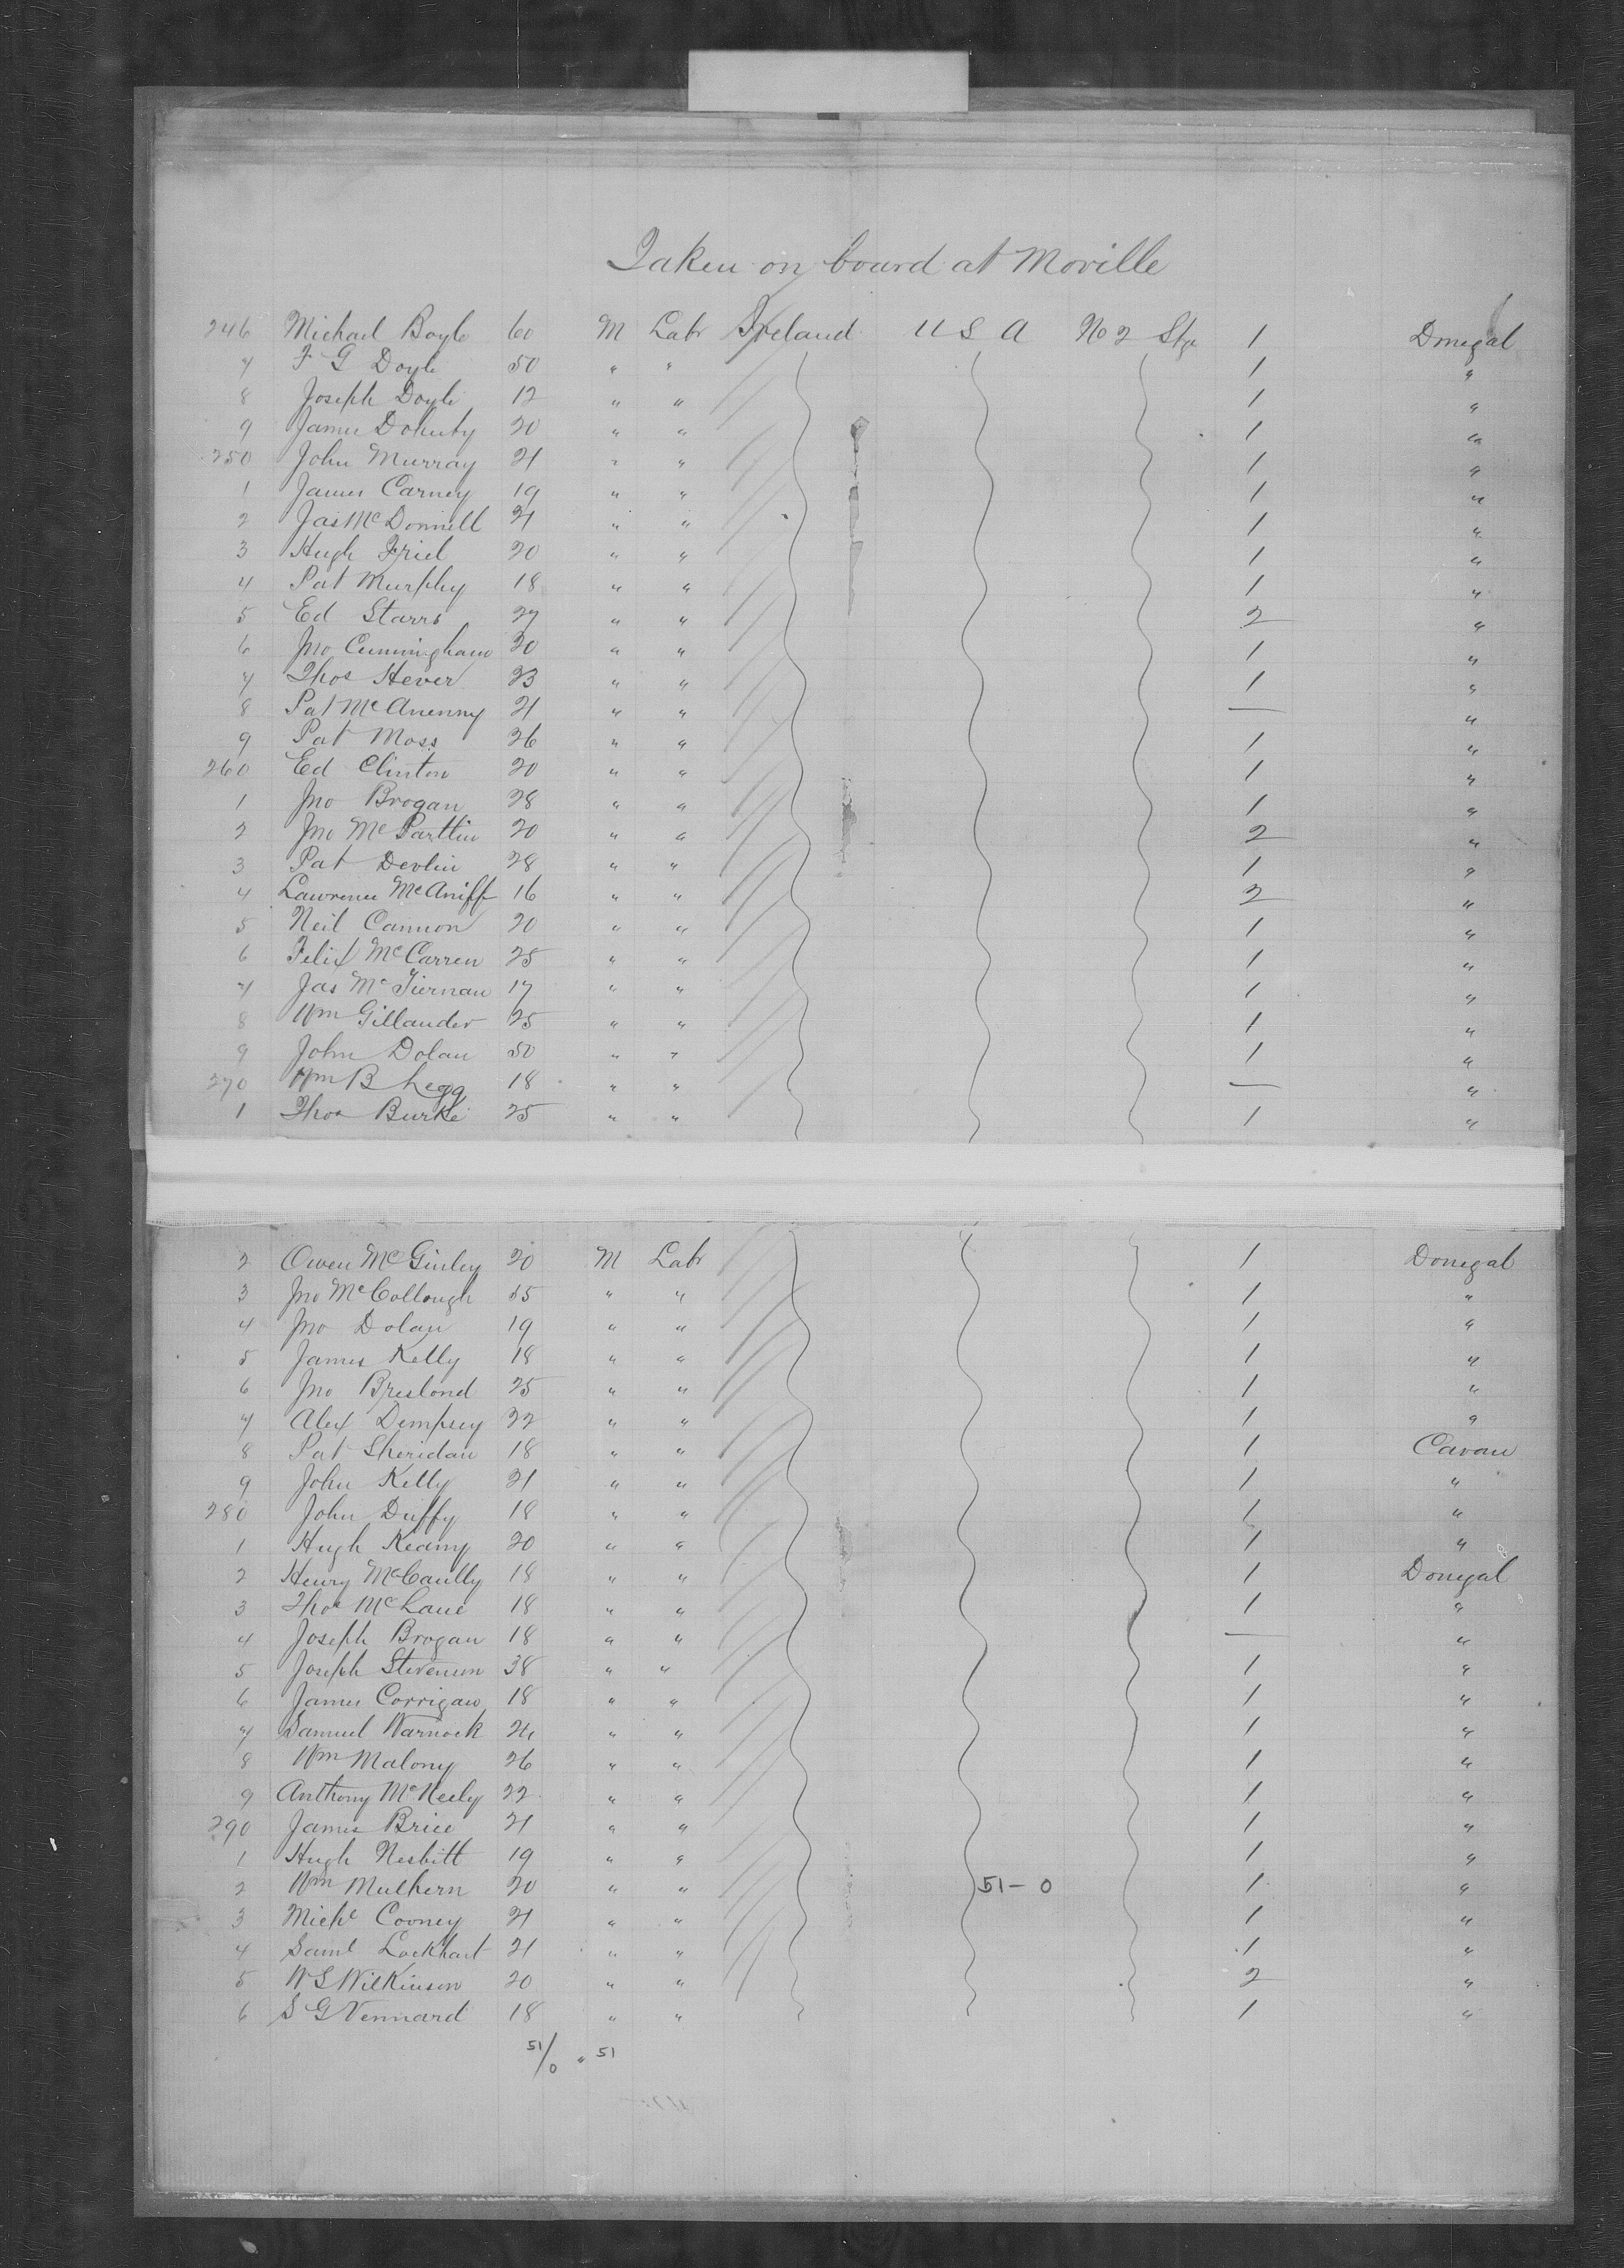 Taken on board at Moville
246 Michael Boyle 60 M Labr Ireland U S A No 2 Stge 1 Donegal
7 F G Doyle 50 " " 1 "
8 Joseph Doyle 12 " " 1 "
9 James Doherty 20 " " 1 "
250 John Murray 21 " " 1 "
1 James Carney 19 " " 1 "
2 Jas McDonnell 21 " " 1 "
3 Hugh Friel 20 " " 1 "
4 Pat Murphy 18 " " 1 "
5 Ed Starrs 27 " " 2 "
6 Jno Cunningham 20 " " 1 "
7 Thos Hever 23 " " 1 "
8 Pat McAnenny 21 " " — "
9 Pat Moss 26 " " 1 "
260 Ed Clinton 20 " " 1 "
1 Jno Brogan 28 " " 1 "
2 Jno McParttin 20 " " 2 "
3 Pat Devlin 28 " " 1 "
4 Lawrence McAniff 16 " " 2 "
5 Neil Cannon 20 " " 1 "
6 Felix McCarren 25 " " 1 "
7 Jas McTiernan 17 " " 1 "
8 Wm Gillander 25 " " 1 "
9 John Dolan 50 " " 1 "
270 Wm B Legg 18 " " — "
1 Thos Burke 25 " " 1 "
2 Owen McGinley 20 M Labr 1 Donegal
3 Jno McCollough 55 " " 1 "
4 Jno Dolan 19 " " 1 "
5 James Kelly 18 " " 1 "
6 Jno Breslond 25 " " 1 "
7 Alex Dempsey 22 " " 1 "
8 Pat Sheridan 18 " " 1 Cavan
9 John Kelly 21 " " 1 "
280 John Duffy 18 " " 1 "
1 Hugh Keany 20 " " 1 "
2 Henry McCaully 18 " " 1 Donegal
3 Thos McLane 18 " " 1 "
4 Joseph Brogan 18 " " — "
5 Joseph Stevenson 38 " " 1 "
6 James Corrigan 18 " " 1 "
7 Samuel Warnock 24 " " 1 "
8 Wm Malony 26 " " 1 "
9 Anthony McNeely 22 " " 1 "
290 James Brice 21 " " 1 "
1 Hugh Nesbitt 19 " " 1 "
2 Wm Mulhern 20 " " 51-0 1 "
3 Michl Cooney 21 " " 1 "
4 Saml Lockhart 21 " " 1 "
5 W S Wilkinson 20 " " 2 "
6 S G Vennard 18 " " 1 "
51/0 " 51